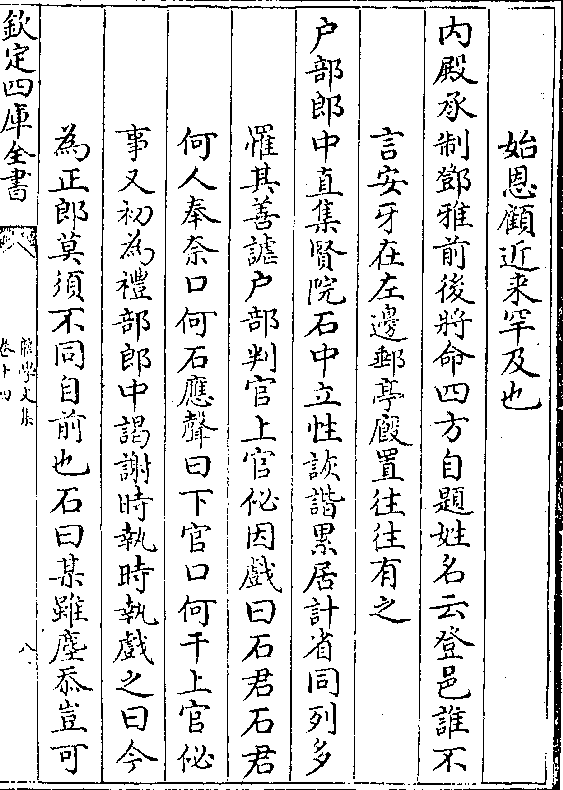 始恩顧近来罕及也
内殿承制鄧雅前後將命四方自題姓名云登邑誰不
言安牙在左邊郵亭廄置往往有之
户部郎中直集賢院石中立性詼諧累居計省同列多
罹其善謔户部判官上官佖因戲曰石君石君
何人奉柰口何石應聲曰下官口何干上官佖
事又初為禮部郎中謁謝時執時執戲之曰今
為正郎莫須不同自前也石曰某雖塵忝豈可
欽定四庫全書
卷十四
八